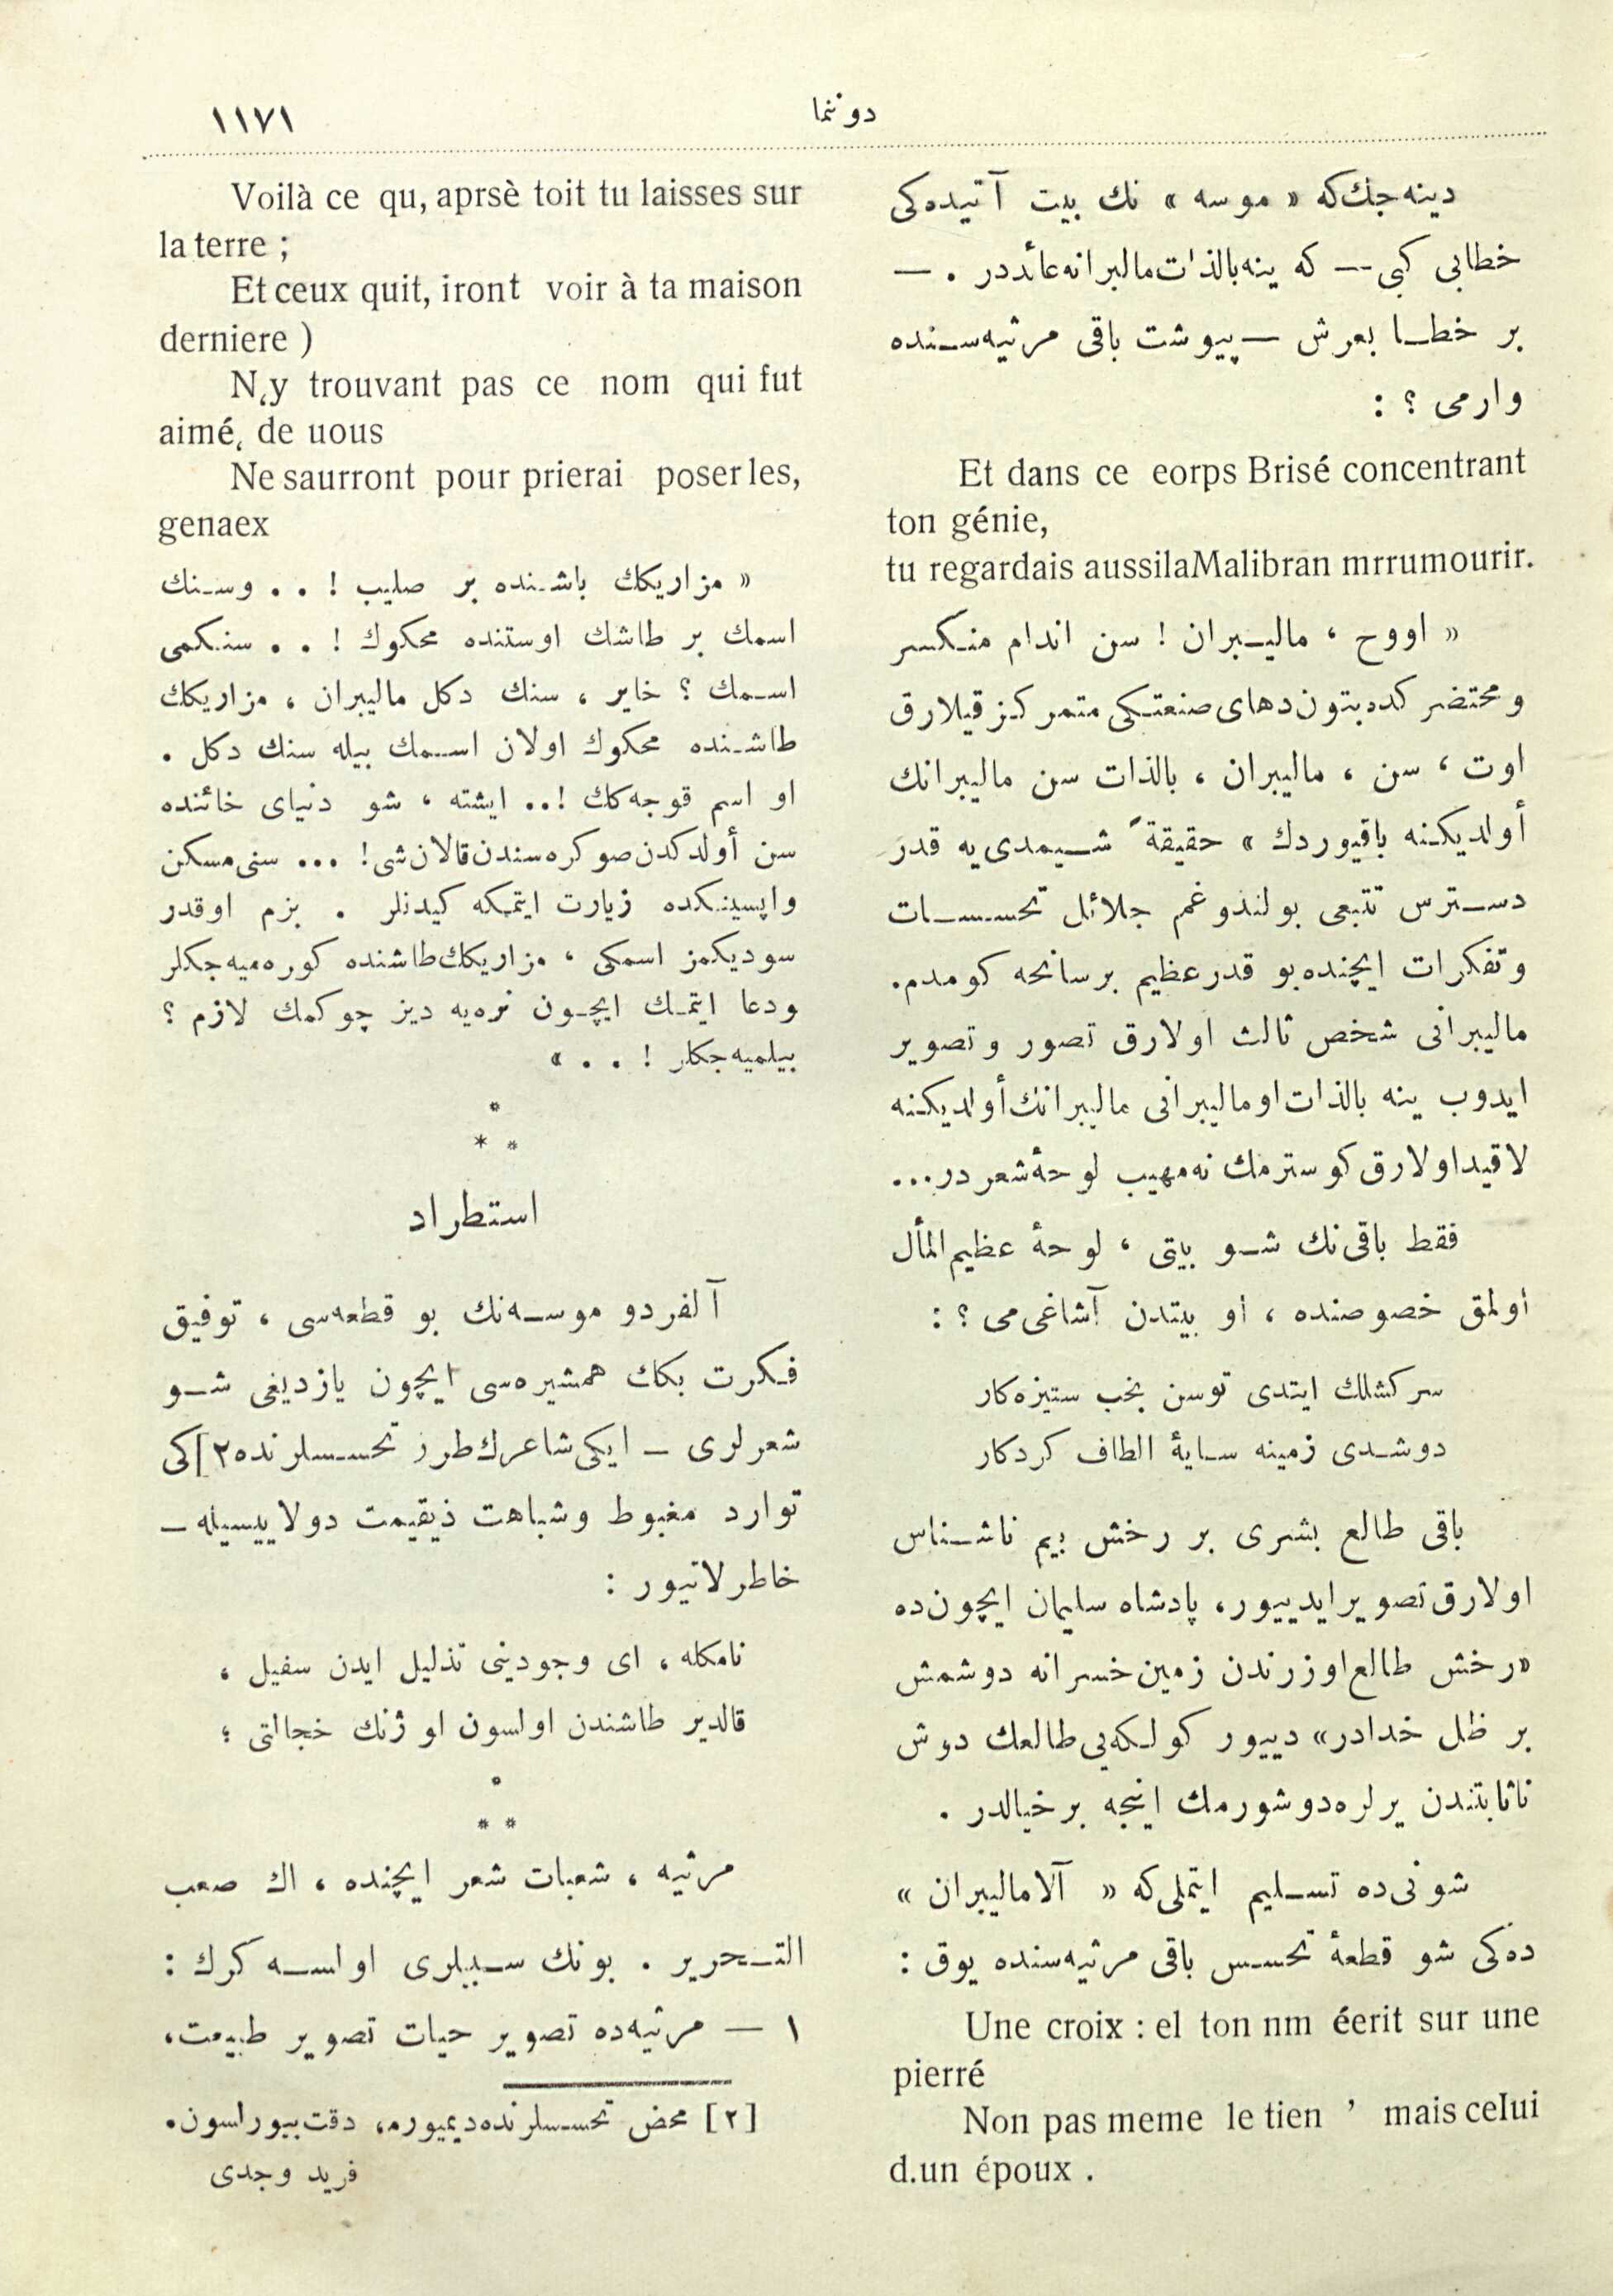 دوننما
١١٧١
دينه‌جك‌كه « موسه » نك بيت آتيده‌كى
خطابى كبى — كه ينه بالذات مالبرانه عائددر . —
بر خطا بعرش — پيوشت باقى مرثيه‌سنده
وارمى ؟ :
Et dans ce eorps Brisé concentrant
ton génie,
tu regardais aussilaMalibran mrrumourir.
« اووح ، ماليبران ! سن اندام منكسر
و محتضر كده بتون دهاى صنعتكى متمر كز قيلارق
اوت ، سن ، ماليبران ، بالذات سن ماليبرانك
أولديكنه باقيوردك » حقيقةً شيمدى‌يه قدر
دسترس تتبعى بولندوغم جلائل تحسسات
و تفكرات ايچنده بو قدر عظيم بر سانحه كومدم.
ماليبرانى شخص ثالث اولارق تصور و تصوير
ايدوب ينه بالذات او ماليبرانى ماليبرانك أولديكنه
لاقيد اولارق كوسترمك نه مهيب لوحهٔ شعر در...
فقط باقى‌نك شو بيتى ، لوحهٔ عظيم المأل
اولمق خصوصنده ، او بيتدن آشاغى‌مى ؟ :
سركشلك ايتدى توسن بخب ستيزه‌كار
دوشدى زمينه سايهٔ الطاف كردكار
باقى طالع بشرى بر رخش بيم ناشناس
اولارق تصوير ايدييور، پادشاه سليمان ايچون‌ده
«رخش طالع اوزرندن زمين خسرانه دوشمش
بر ظل خدادر» دييور كولكه‌يى طالعك دوش
ناثابتندن يرلره دوشورمك اينجه بر خيالدر .
شونى‌ده تسليم ايتملى‌كه « آلاماليبران »
ده‌كى شو قطعهٔ تحسس باقى مرثيه‌سنده يوق :
Une croix : el ton nm éerit sur une
pierré
Non pas meme le tien ’ mais celui
d.un époux .
Voilà ce qu, aprsè toit tu laisses sur
la terre ;
Et ceux quit, iront voir à ta maison
derniere )
N,y trouvant pas ce nom qui fut
aimé, de uous
Ne saurront pour prierai poser les,
genaex
« مزاريكك باشنده بر صليب ! . . وسنك
اسمك بر طاشك اوستنده محكوك ! . . سنكمى
اسمك ؟ خاير ، سنك دكل ماليبران ، مزاريكك
طاشنده محكوك اولان اسمك بيله سنك دكل .
او اسم قوجه‌كك !.. ايشته ، شو دنياى خائنده
سن أولدكدن صوكره سندن قالان شى! ... سنى مسكن
واپسينكده زيارت ايتمكه كيدنلر . بزم اوقدر
سوديكمز اسمكى ، مزاريكك طاشنده كوره‌ميه‌جكلر
ودعا ايتمك ايچون نره‌يه ديز چوكمك لازم ؟
بيلميه‌جكلر ! . . »
*
* *
استطراد
آلفردو موسه‌نك بو قطعه‌سى ، توفيق
فكرت بكك همشيره‌سى ايچون يازديغى شو
شعرلرى — ايكى شاعرك طرز تحسسلرنده٢]كى
توارد مغبوط وشباهت ذيقيمت دولاييسيله —
خاطرلاتيور :
نامكله ، اى وجودينى تذليل ايدن سفيل ،
قالدير طاشندن اولسون او ژنك خجالتى ؛
*
* *
مرثيه ، شعبات شعر ايچنده ، اك صعب
التحرير . بونك سببلرى اولسه كرك :
١ — مرثيه‌ده تصوير حيات تصوير طبيعت،
[٢] محض تحسسلرنده ديميورم، دقت بيورلسون.
فريد وجدى